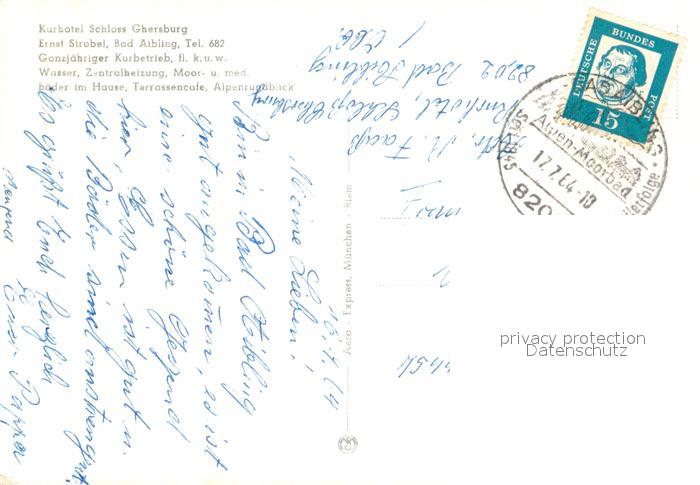 Kurhotel Schloss Ghersburg
Ernst Strobel, Bad Aibling, Tel. 682
Ganzjähriger Kurbetrieb, fl. k. u. w.
Wasser, Zentralheizung, Moor- u. med.
Bäder im Hause, Terrassencafe, Alpenrundblick
16.7.64
Meine Lieben,
Bin in Bad Aibling
gut angekommen, es ist
eine schöne Gegend
hier, Essen ist gut u.
die Bäder sind anstrengend.
Es grüßt Euch herzlich
Euer Pappa
Kurhotel, Schloß Ghersburg
8202 Bad Aibling
Aero - Express, München - Riem
DEUTSCHE BUNDES POST
15
Seit 1845
Alpen-Moorbad
17.7.64-18
820
privacy protection
Datenschutz